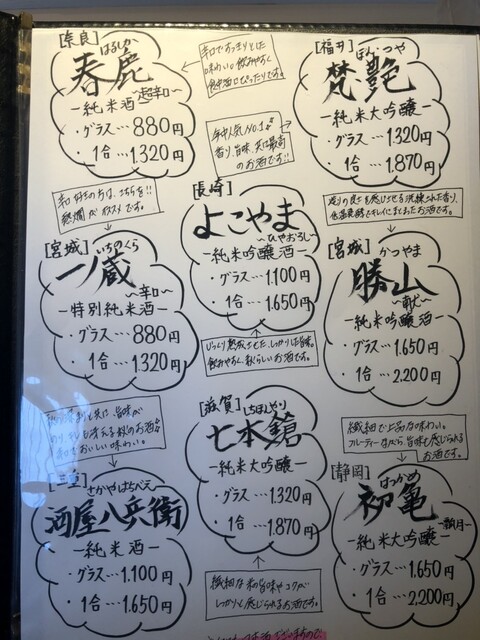 [奈良]
はるしか
春鹿
〜超辛口〜
ー純米酒ー
・グラス…880円
・1合…1.320円
辛口ですっきりとした
味わい。飲みやすく
食中酒にぴったりです。
[福井]
ぼんつや
梵艶
ー純米大吟醸ー
・グラス…1.320円
・1合…1.870円
年中人気NO.1!!
香り、旨味、共に最高
のお酒です!!
辛口好きの方は、こちらを!!
熱燗がオススメです。
[長崎]
よこやま
〜ひやおろし〜
ー純米吟醸酒ー
・グラス…1.100円
・1合…1.650円
造りの良さを感じさせる洗練された香り、
[宮城]
いちのくら
一ノ蔵
〜辛口〜
ー特別純米酒ー
・グラス…880円
・1合…1.320円
[宮城]
かつやま
勝山
〜献〜
ー純米吟醸酒ー
・グラス…1.650円
・1合…2.200円
じっくり熟成させた、しっかりした旨味。
飲みやすく、秋らしいお酒です。
[滋賀]
しちほんやり
七本鎗
ー純米大吟醸ー
・グラス…1.320円
・1合…1.870円
繊細で上品な味わい。
フルーティーながら旨味も感じられる
お酒です。
[三重]
さかやはちべえ
酒屋八兵衛
ー純米酒ー
・グラス…1.100円
・1合…1.650円
[静岡]
はつかめ
初亀
ー純米大吟醸ー
・グラス…1.650円
・1合…2.200円
繊細な和旨味やコクが
しっかりと感じられるお酒です。